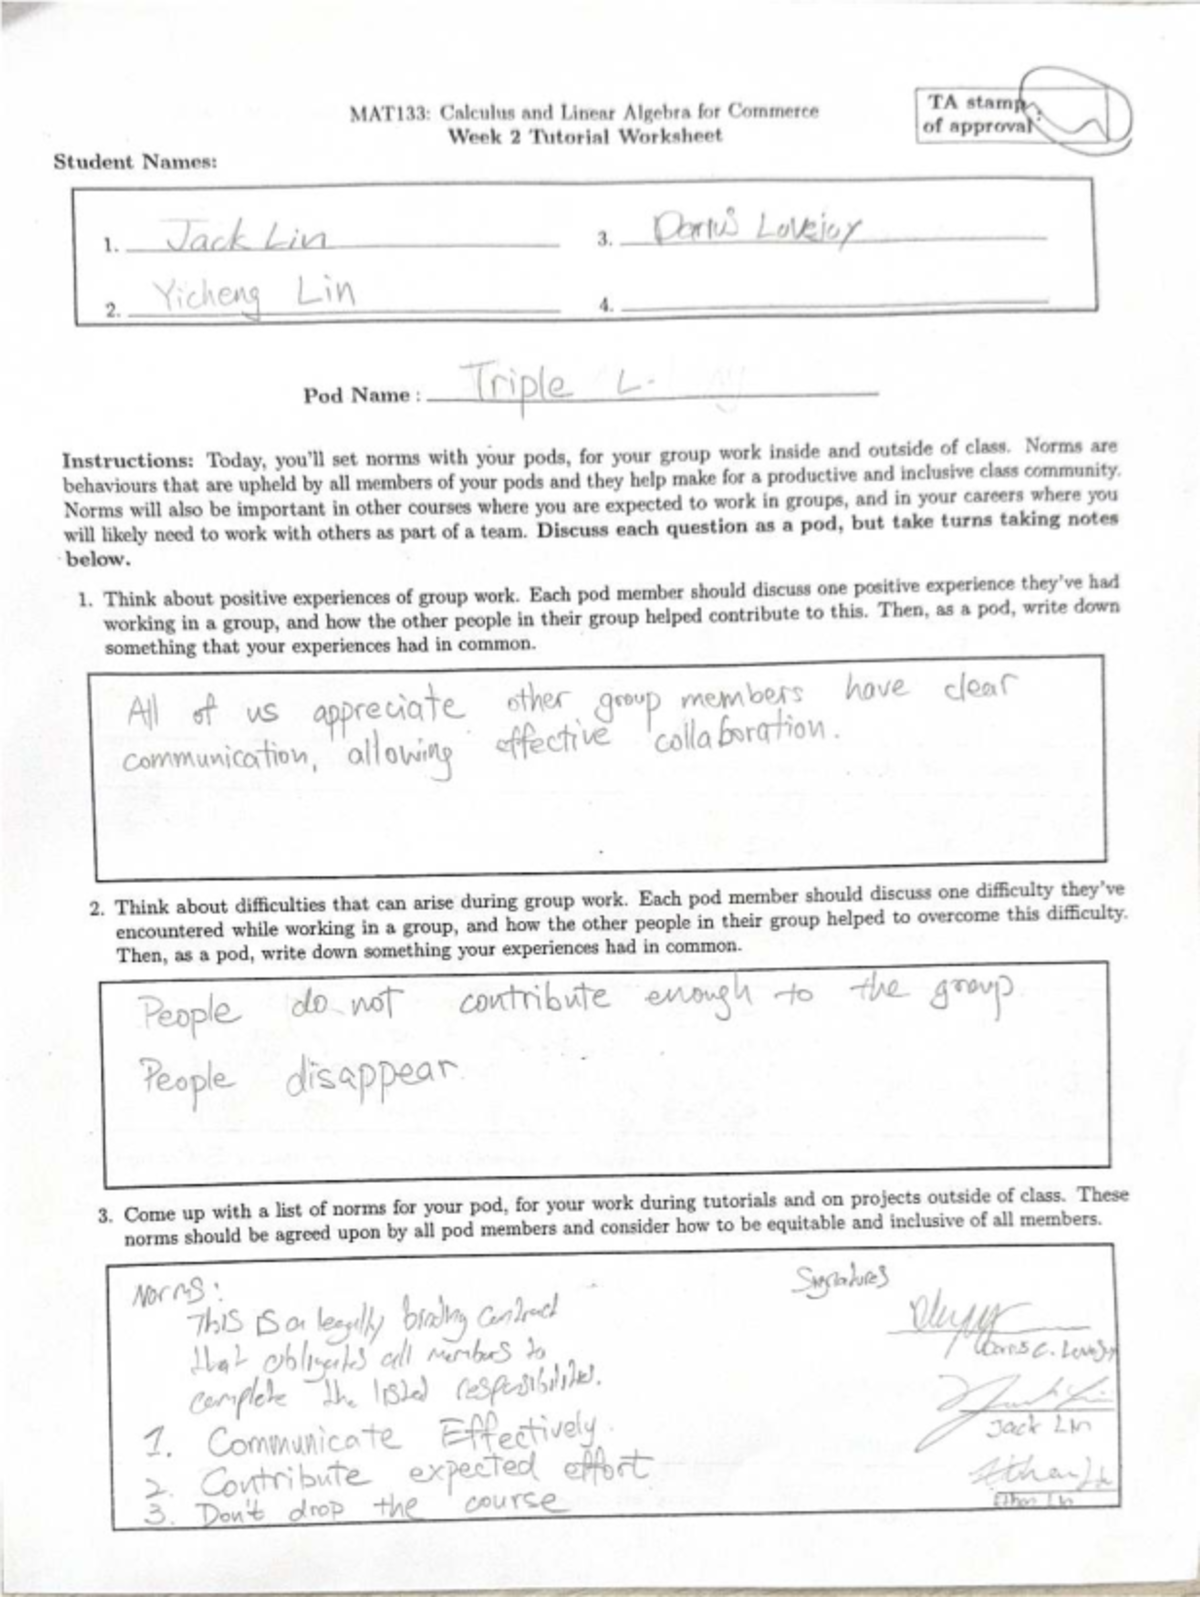 MAT133: Calculus and Linear Algebra for Commerce
Week 2 Tutorial Worksheet
TA stamp
of approval:
Student Names:
1. Jack Lin
3. Darius Lovejoy
2. Yicheng Lin
4.
Pod Name : Triple L.
Instructions: Today, you'll set norms with your pods, for your group work inside and outside of class. Norms are
behaviours that are upheld by all members of your pods and they help make for a productive and inclusive class community.
Norms will also be important in other courses where you are expected to work in groups, and in your careers where you
will likely need to work with others as part of a team. Discuss each question as a pod, but take turns taking notes
below.
1. Think about positive experiences of group work. Each pod member should discuss one positive experience they've had
working in a group, and how the other people in their group helped contribute to this. Then, as a pod, write down
something that your experiences had in common.
All of us appreciate other group members have clear
communication, allowing effective collaboration.
2. Think about difficulties that can arise during group work. Each pod member should discuss one difficulty they've
encountered while working in a group, and how the other people in their group helped to overcome this difficulty.
Then, as a pod, write down something your experiences had in common.
People do not contribute enough to the group.
People disappear.
3. Come up with a list of norms for your pod, for your work during tutorials and on projects outside of class. These
norms should be agreed upon by all pod members and consider how to be equitable and inclusive of all members.
Norms:
This is a legally binding contract
that obligates all members to
complete the listed responsibilities.
1. Communicate Effectively.
2. Contribute expected effort
3. Don't drop the course
Signatures
Darius C. Lovejoy
Jack Lin
Ethan Lin
Ethan Lin